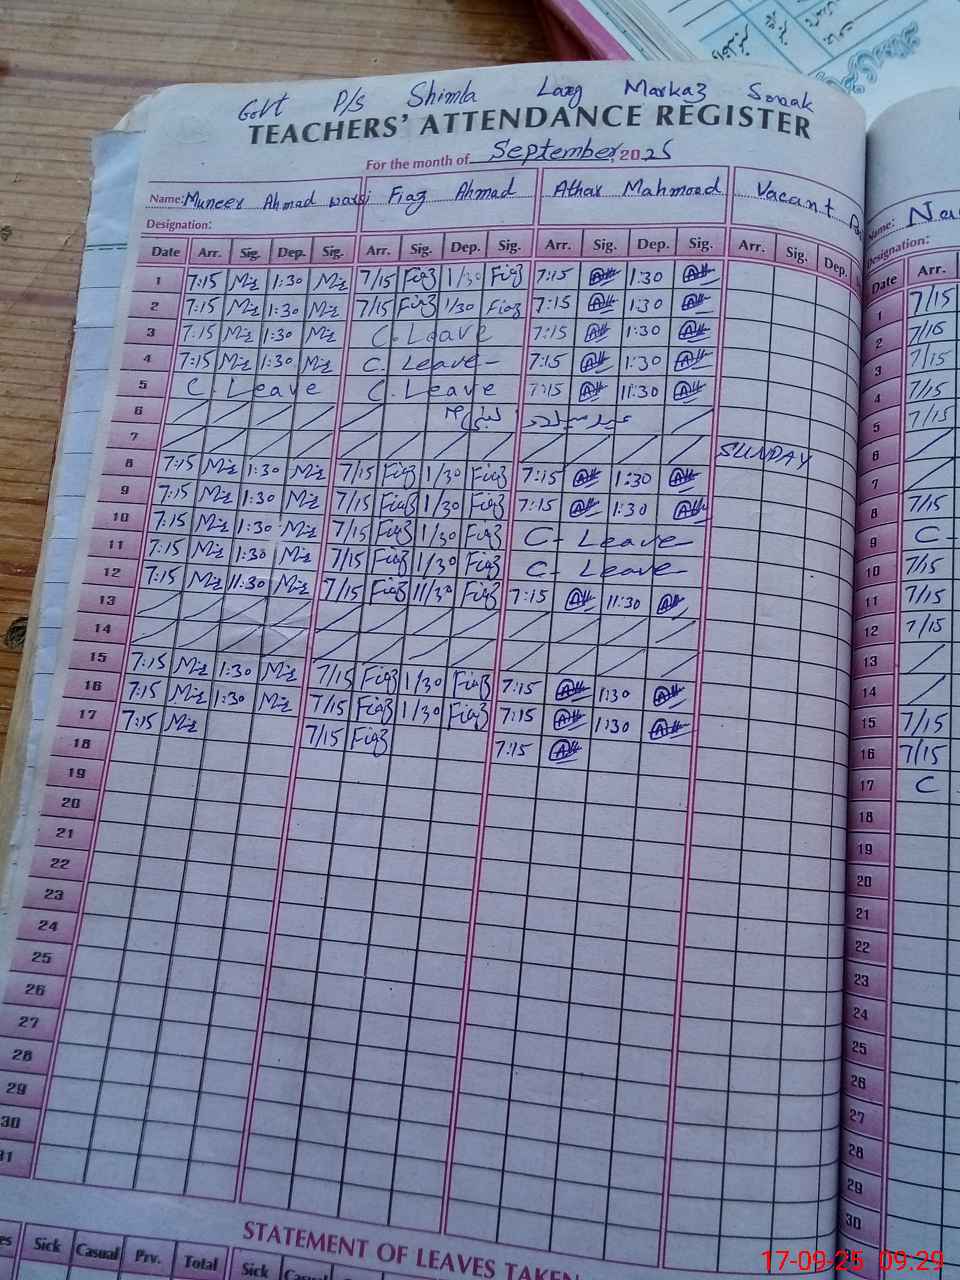 Govt P/s Shimla Larg Markaz Sonak
TEACHERS' ATTENDANCE REGISTER
For the month of September, 2025
Name: Muneer Ahmad warsi Fiaz Ahmad Athar Mahmood Vacant
Designation:
Date Arr. Sig. Dep. Sig. Arr. Sig. Dep. Sig. Arr. Sig. Dep. Sig. Arr. Sig. Dep.
1 7:15 1:30 7/15 Fiaz 1/30 Fiaz 7:15 1:30
2 7:15 1:30 7/15 Fiaz 1/30 Fiaz 7:15 1:30
3 7:15 1:30 C. Leave 7:15 1:30
4 7:15 1:30 C. Leave - 7:15 1:30
5 C. Leave C. Leave 7:15 11:30
6
7 SUNDAY
8 7:15 1:30 7/15 Fiaz 1/30 Fiaz 7:15 1:30
9 7:15 1:30 7/15 Fiaz 1/30 Fiaz 7:15 1:30
10 7:15 1:30 7/15 Fiaz 1/30 Fiaz C. Leave
11 7:15 1:30 7/15 Fiaz 1/30 Fiaz C. Leave
12 7:15 11:30 7/15 Fiaz 11/30 Fiaz 7:15 11:30
13
14
15 7:15 1:30 7/15 Fiaz 1/30 Fiaz 7:15 1:30
16 7:15 1:30 7/15 Fiaz 1/30 Fiaz 7:15 1:30
17 7:15 7/15 Fiaz 7:15
18
19
20
21
22
23
24
25
26
27
28
29
30
31
STATEMENT OF LEAVES TAKEN
Sick Casual Prv. Total Sick
Name:
Designation:
Date Arr.
1 7/15
2 7/15
3 7/15
4 7/15
5 7/15
6
7
8 7/15
9 C
10 7/15
11 7/15
12 7/15
13
14
15 7/15
16 7/15
17 C
18
19
20
21
22
23
24
25
26
27
28
29
30
17-09-25 09:29